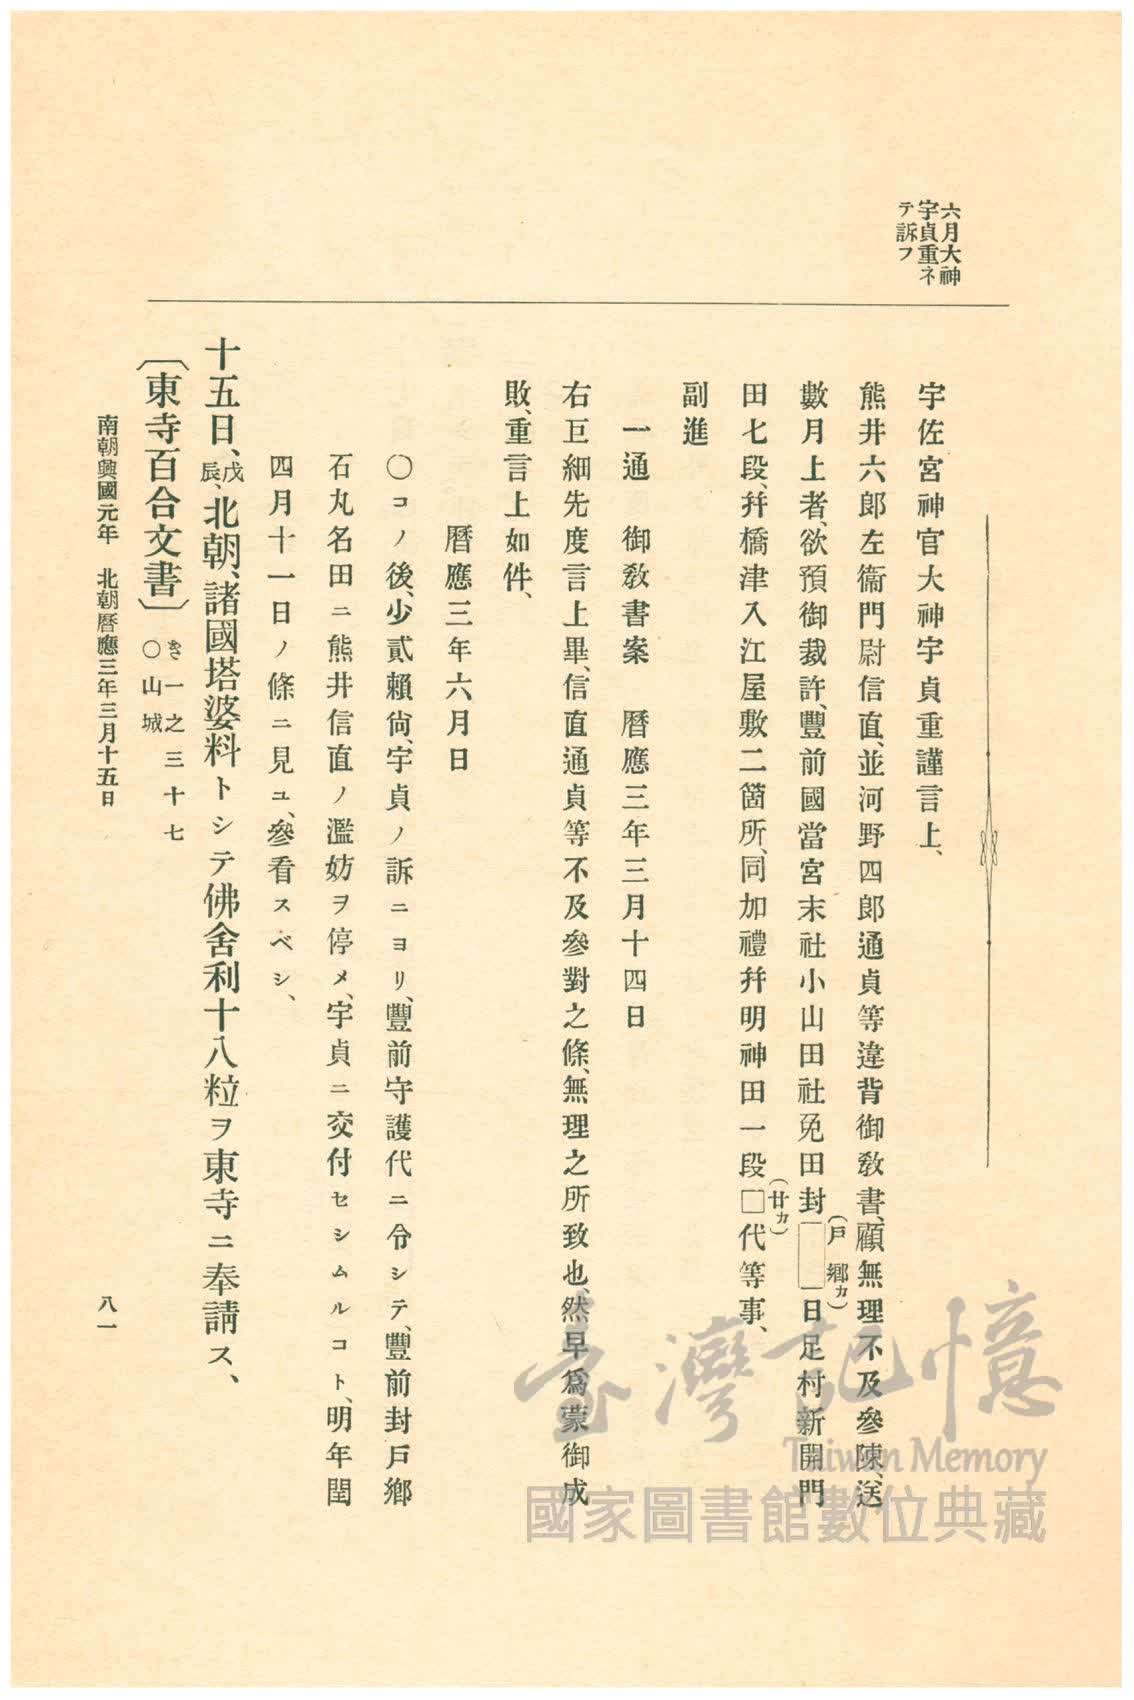 六月大神
宇貞重ネ
テ訴フ
宇佐宮神官大神宇貞重謹言上、
熊井六郎左衞門尉信直、並河野四郎通貞等違背御敎書、顧無理不及參陳、送
數月上者、欲預御裁許、豐前國當宮末社小山田社免田封□(戶鄕カ)日足村新開門
田七段、幷橋津入江屋敷二箇所、同加禮幷明神田一段□(廿カ)代等事、
副進
一通　御敎書案　曆應三年三月十四日
右巨細先度言上畢、信直通貞等不及參對之條、無理之所致也、然早爲蒙御成
敗、重言上如件、
曆應三年六月日
○コノ後、少貳賴尙、宇貞ノ訴ニヨリ、豐前守護代ニ令シテ、豐前封戶鄕
石丸名田ニ熊井信直ノ濫妨ヲ停メ、宇貞ニ交付セシムルコト、明年閏
四月十一日ノ條ニ見ユ、參看スベシ、
十五日、戊辰、北朝、諸國塔婆料トシテ佛舍利十八粒ヲ東寺ニ奉請ス、
〔東寺百合文書〕き一之三十七○山城
南朝興國元年　北朝曆應三年三月十五日
八一
臺灣記憶
Taiwan Memory
國家圖書館數位典藏